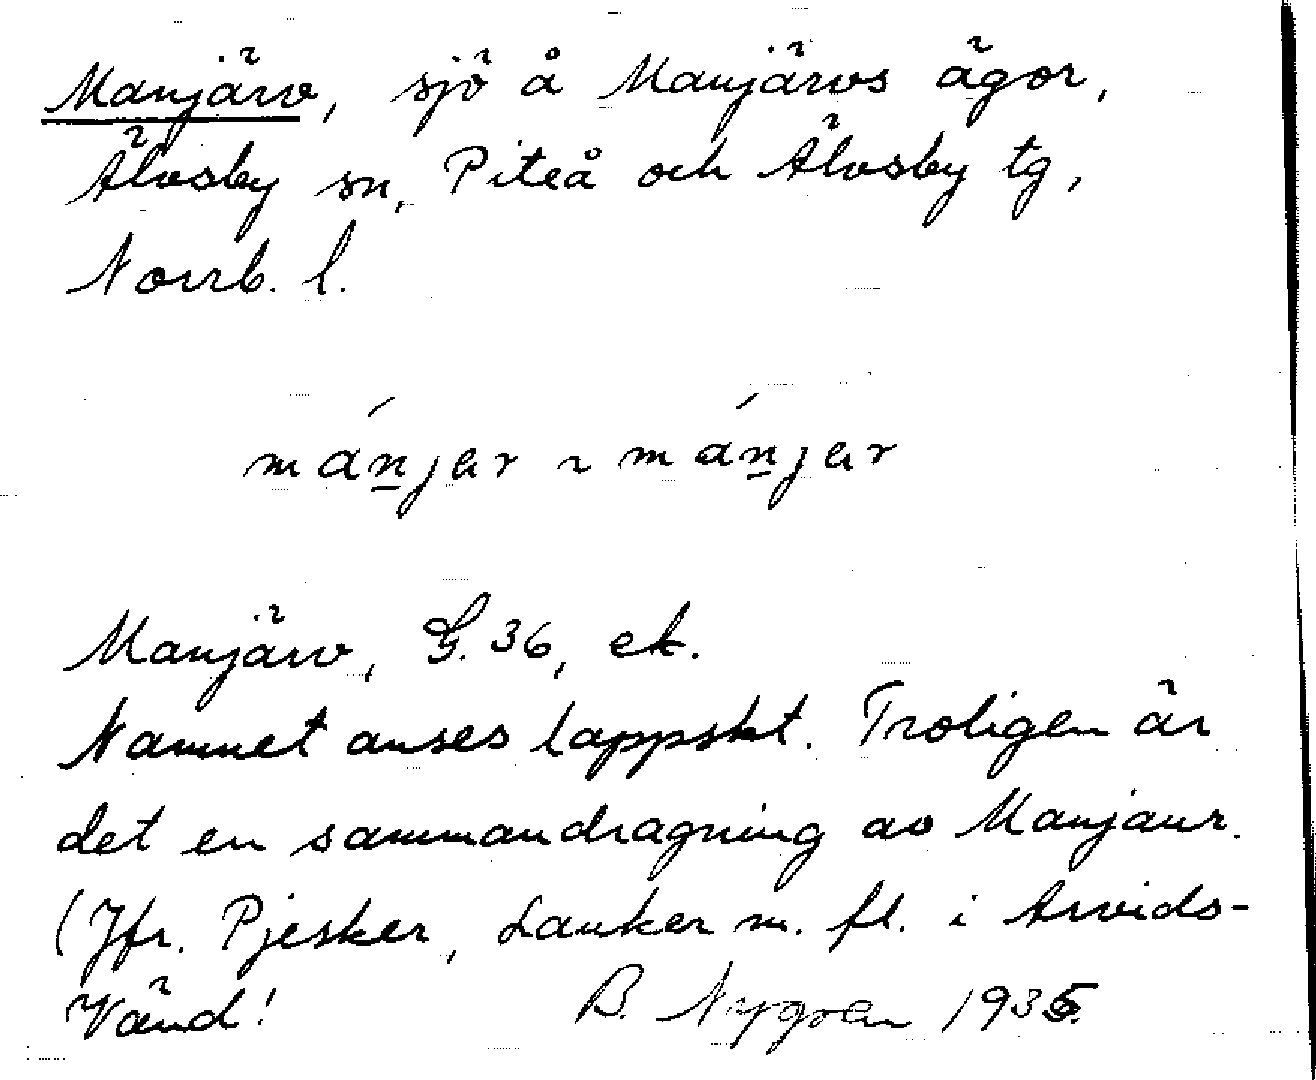 Manjärv, sjö å Manjärvs ägor,
Älvsby sn, Piteå och Älvsby tg,
Norrb. l.
mánjar ~ mánjar
Manjärv, G. 36, ek.
Namnet anses lappskt. Troligen är
det en sammandragning av Manjaur.
(Jfr. Pjesker, Lauker m. fl. i Arvids-
Vänd! B. Nygren 1935.